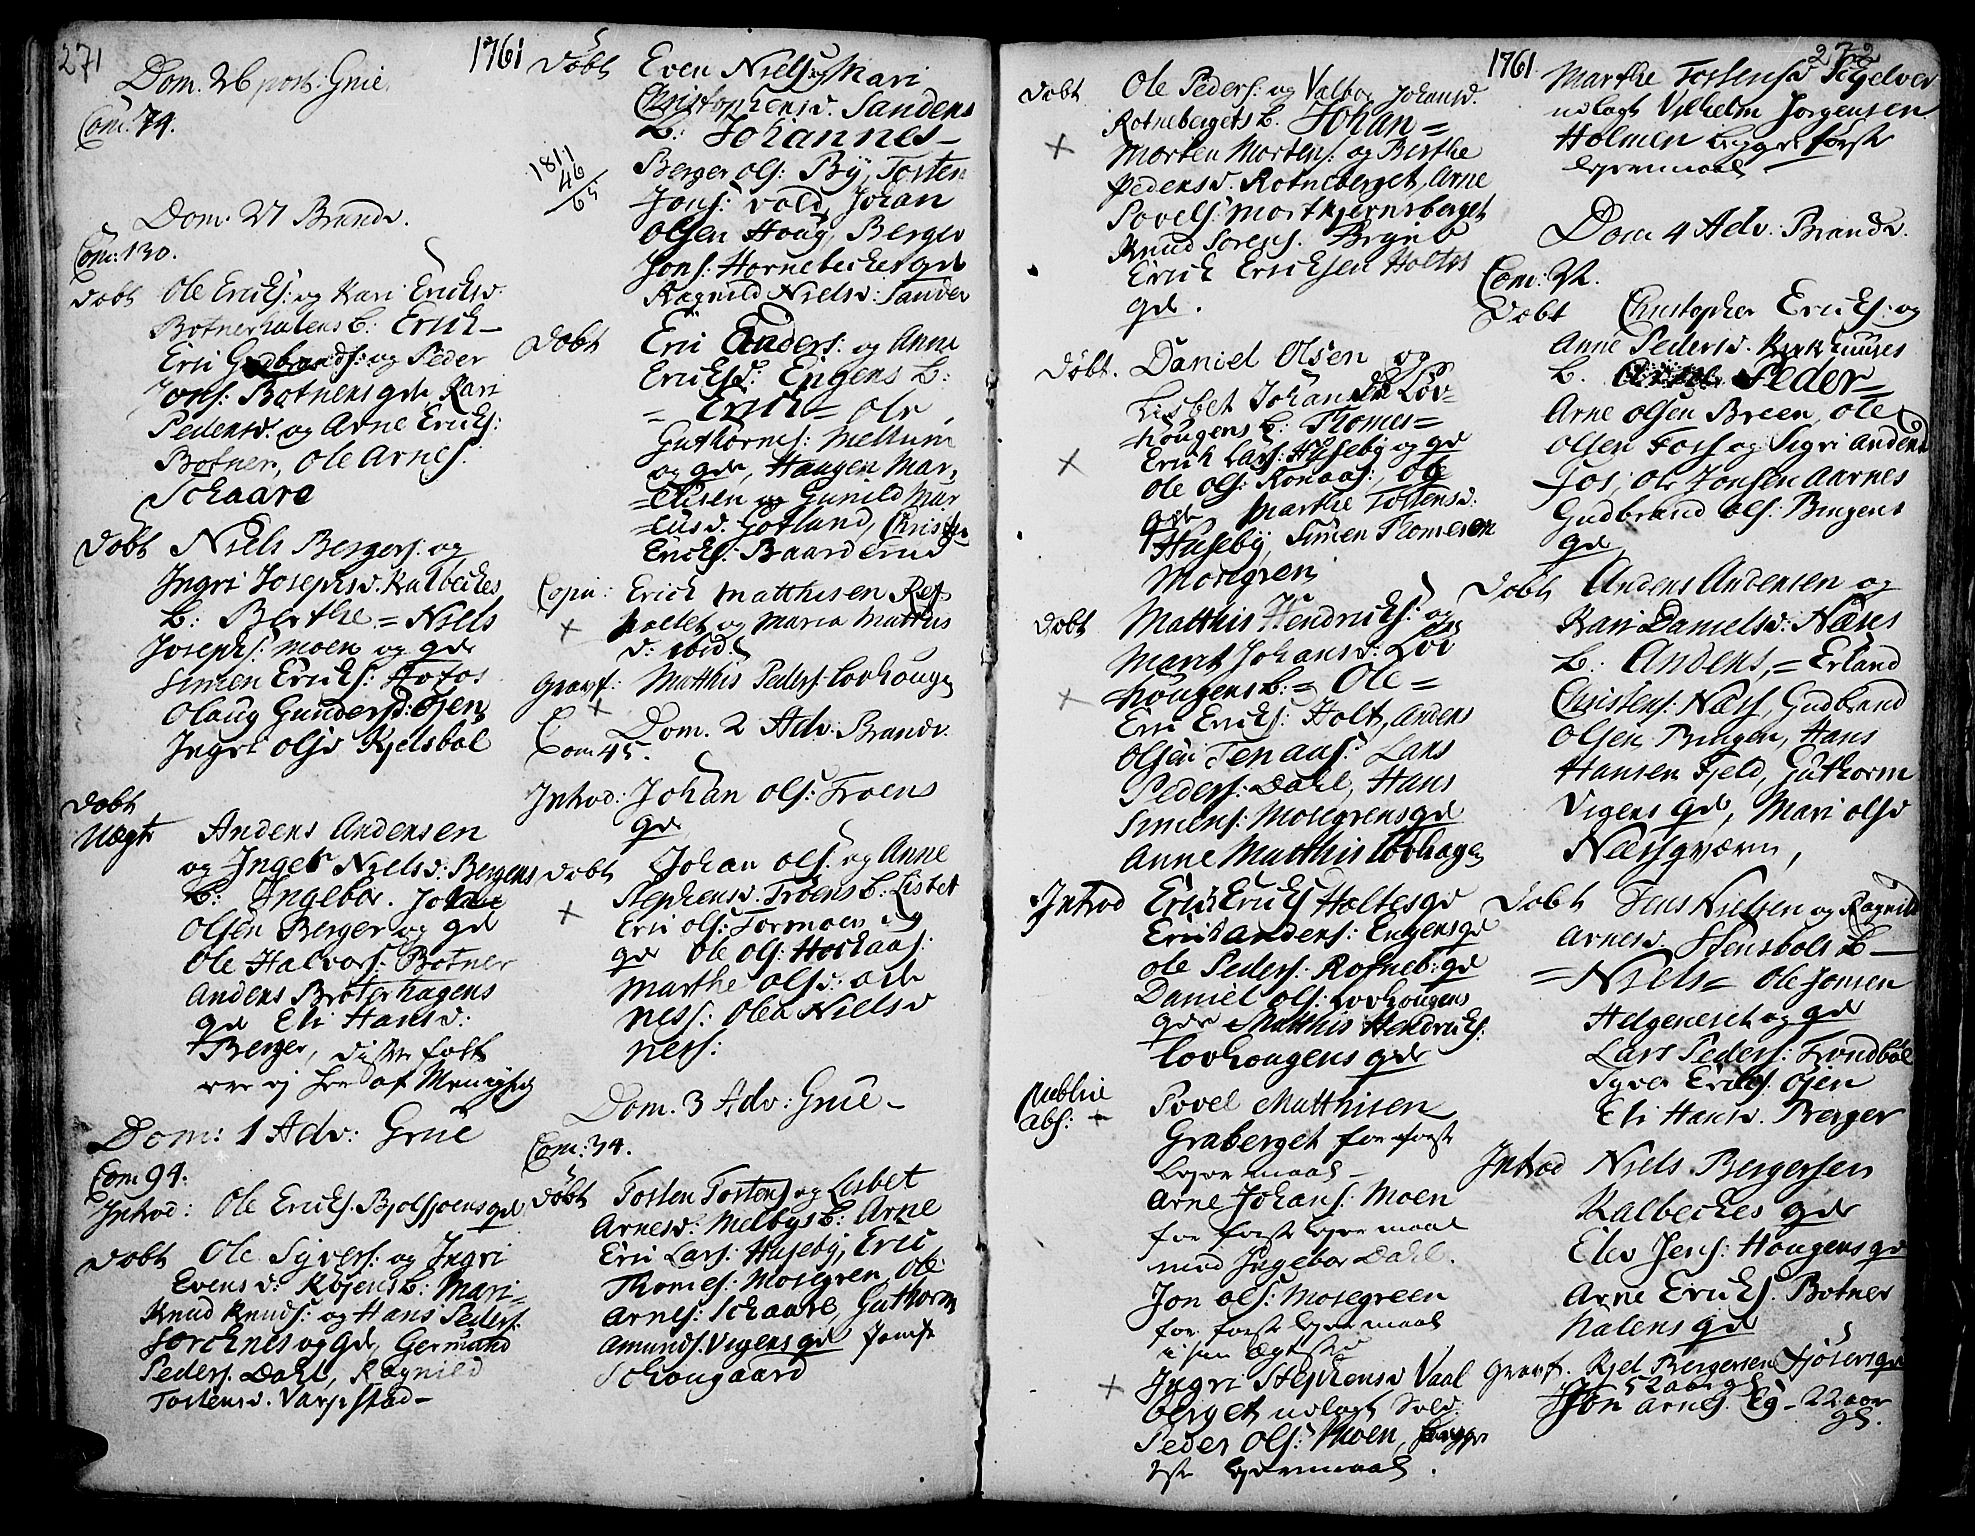 271
1761
Dom. 26 post: Grue.
Com: 74.
Dom: 27 Brandv.
Com: 130.
Døbt Ole Ericks: og Kari Ericksd.
Botnerhalens b: Erich -
Eric Gudbrands: og Peder
Jons: Botnens gdr Kari
Pedersd. og Arne Ericks:
Botner, Ole Arnes:
Schaare
Døbt Niels Bergers: og
Ingri Josephsd. Kalbeckes
b: Berthe = Niels
Josephs: Moen og gdr
Simen Ericks: Hotos
Olaug Gundersd: Øjen
Ingri Olsd Kjelsbøl
Døbt
Uægte Anders Andersen
og Inger Nielsd: Bergers
b: Ingebor. Johan
Olsen Berger og gdr
Ole Halvors: Botner
Anders Broterhagens
gdr Eli Hansd:
Berger, disse folk
ere ej her af Menighed
Dom: 1 Adv: Grue
Com 94.
Introd: Ole Ericks. Bjolsjoens gdr
Døbt Ole Syvers: og Ingri
Evensd: Røjens b: Mari =
Knud Knuds: og Hans Peders:
Sorchnes og gdr, Germund
Peders. Dahl, Ragnild
Tostensd. Varpestad -
Døbt Even Niels: og Mari
Christophersd. Sandens
b: Johannes -
Berger Ols: By, Tosten
Jons: Vold, Johan
Olsen Houg, Berger
Jons: Hornebeckes gdr
Ragnild Nielsd: Sander
1811
46
65
Døbt Eric Anders: og Anne
Ericksd: Engens b:
= Erich = Ole
Guthorms: Mellum
og gdr, Haagen Mar-
=cusen og Gunild Mar
=cusd. Gotland, Christ
Ericks: Baarderud
Copu: Erich Matthisen Ref-
halet og Maria Matthis
d: ibid
Gravf: Matthis Peders: Lovhougen
Dom. 2 Adv: Brandv.
Com 45.
Introd: Johan Ols: Troens
gdr
Døbt Johan Ols: og Anne
Stephensd. Troens b: Lisbet
Eric Ols: Formoen og
gdr Ole Ols: Hockaas:
Marthe Olsd: Ode
ness: Olea Nielsd
ness:
Dom. 3 Adv: Grue -
Com: 34.
Døbt Tosten Tostens og Lisbet
Arnesd: Melbys b: Arne
Eric Lars: Huseby, Eric
Thomes: Mosegren, Ole
Arnes: Schaare, Guthorm
Amunds. Vigens gdr
Schougaard
1761
272
Døbt Ole Peders: og Valbor Johansd.
Rotnebergets b. Johan =
Morten Mortens: og Berthe
Pedersd. Rotneberget, Arne
Povels: Mortkjernsberget
Knud Sorens:
Erick Ericksen Holtes
gdr.
Døbt. Daniel Olsen og
Lisbet Johansd: Lov-
hougens b: Thomes =
Erick Lars: Huseby og gdr
Ole Ols: Ronaas:, Ole
gdr Marthe Tostensd:
Huseby, Simen Thomesen
Mosegren
Døbt Matthis Hendricks: og
Marit Johansd: Lov
hougens b: = Ole =
Eric Ericks: Holt, Anders
Olsen Tenaas: Lars
Peders: Dahl, Hans
Simens: Mosegrens gdr
Anne Matthisd Lovhagen
Introd Erick Ericks Holtes gdr
Erick Anders: Engens gdr
Ole Peders: Rotneb: gdr
Daniel Ols: Lovhougens
gdr Matthis Hendricks:
Lovhougens gdr
Publice
abs: + Povel Matthisen
Graberget for første
lejermaal -
Arne Johans: Moen
for første lejermaal
med Ingebor Dahl.
Jon Ols: Mosegreen
for første lejermaal
Ingri Stephensd Vaal
berget udlagt Sold:
Peder Ols: Moen, begge
1ste lejermaal.
Marthe Tostensd
udlagt Vilhelm Jorgensen
Holmen begges første
lejermaal -
Dom 4 Adv: Brandv.
Com: 32.
Døbt Christopher Ericks: og
Anne Pedersd. Kirkhuuses
b. Peder =
Arne Olsen Breen, Ole
Olsen Fos og Sigri Andersd
Fos, Ole Jonsen Aarnes
Gudbrand Ols: Bringens
gdr
Døbt Anders Andersen og
Kari Danielsd: Næses
b: Anders, = Erland
Christens: Næss, Gudbrand
Olsen Bringen, Hans
Hansen Fjeld, Guthorm
Vigens gdr, Mari Olsd
Næssqværn,
Døbt Jens Nielsen og Ragnild
Arnesd. Stensbøls b -
= Niels = Ole Jonsen
Helgeneset og gdr
Lars Peders: Trondbøl
Syver Ericks. Øjen
Eli Hansd. Berger
Introd Niels Bergersen
Kalbeckes gdr
Elev Jens: Hougens gdr
Arne Ericks. Botner
halens gdr
Gravf. Kjel Bergersen
52 aar gl
Jon Arnes. Eg - 22 aar
gl.